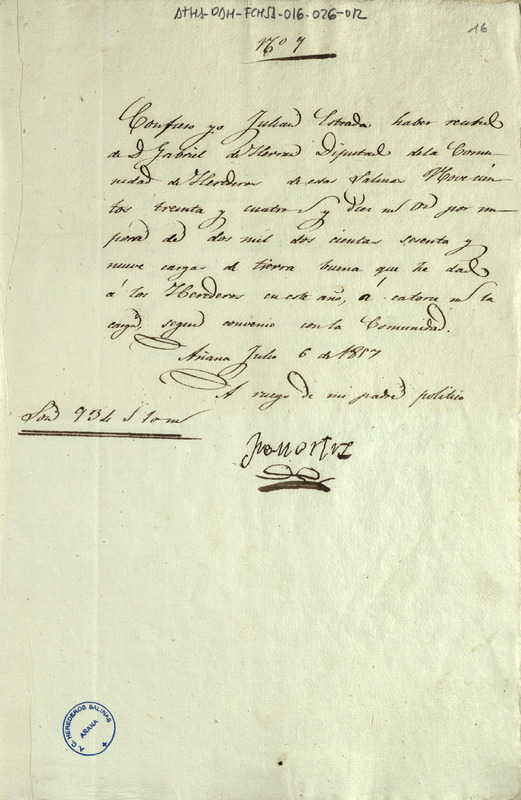 ATHA-DAH-FCHSA-016.026-012
16
Nº 9
Confieso yo Julian Estrada haber recibido
de D Gabriel de Herran Diputado de la Comu
nidad de Herederos de estas Salinas Novecien
tos treinta y cuatro y diez ms por im
porte de dos mil dos cientas sesenta y
nueve cargas de tierra buena que he dado
á los Herederos en este año, á catorce ms la
carga, segun convenio con la Comunidad.
Añana Julio 6 de 1857
A ruego de mi padre politico
Son 934 10 ms
A.C. HEREDEROS SALINAS
AÑANA